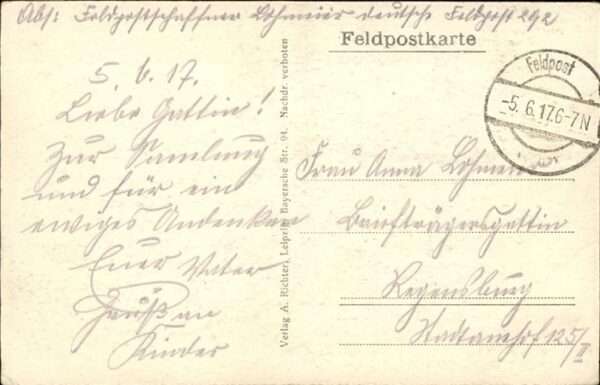 Abs: Feldpostschaffner Lohmeier deutsche Feldpost 292
Feldpostkarte
Feldpost
-5.6.17.6-7N
5. 6. 17.
Liebe Gattin!
Zur Samlung
und für ein
ewiges Andenken
Euer Vater
Gruß an
Kinder
Verlag A. Richter, Leipzig, Bayersche Str. 94. Nachdr. verboten
Frau Anna Lohmeier
Briefträgersgattin
Regensburg
Stadtamhof 125/II